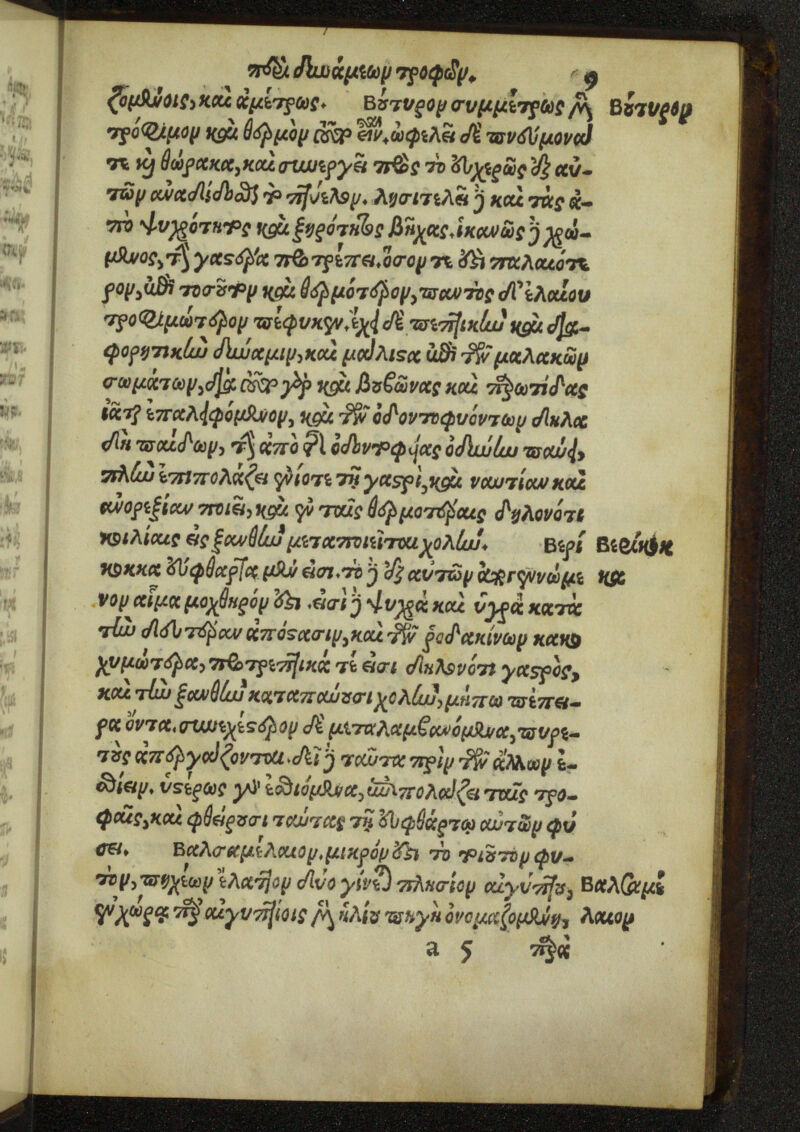 περὶ δυνάμεων τροφῶν. 9
ζομένοις, καὶ ἀμέτρως. Βούτυρον συμμέτρως μὲν Βούτυρον
τρόφιμον καὶ θερμόν ἐστιν. ὠφελεῖ δὲ πνεύμονά
τε καὶ θώρακα, καὶ συνεργεῖ πρὸς τὸ εὐχερῶς ἐξ αὐ-
τῶν ἀναδίδοσθαι τὸ πτύελον. λυσιτελεῖ δὲ καὶ τὰς ἀ-
πὸ ψυχρότητος καὶ ξηρότητος βῆχας. ἱκανῶς δὲ χρώ-
μενος, τὴν γαστέρα προτρέπει. ὅσον τε ἐστὶ παλαιότε
ρον, ἐπὶ τοσοῦτον καὶ θερμότερον, παντὸς δ' ἐλαίου
τροφιμώτερον πέφυκεν. ἔχει δὲ πεπτικὴν καὶ δια-
φορητικὴν δύναμιν, καὶ μάλιστα ἐπὶ τῶν μαλακῶν
σωμάτων, διὰ τοῦτο γὰρ καὶ βουβῶνας καὶ παρωτίδας
ἰᾶται ἐπαλειφόμενον, καὶ τῶν ὀδοντοφυόντων δηλα
δὴ παίδων, τὴν ἀπὸ τῆς ὀδοντοφυίας ὀδύνην παύει,
πλὴν ἐπιπολάζει ἐνίοτε τῇ γαστρὶ, καὶ ναυτίαν καὶ
ἀνορεξίαν ποιεῖ, καὶ ἐν ταῖς θερμοτέραις δηλονότι
κοιλίαις εἰς ξανθὴν μεταποιεῖται χολήν. Βερί Βερίκοκ
κοκκα εὔφθαρτα μέν εἰσι. τὸ δὲ ἐξ αὐτῶν ἀπογεννώμε κα
νον αἷμα μοχθηρόν ἐστι. εἰσὶ δὲ ψυχρὰ καὶ ὑγρὰ κατὰ
τὴν δευτέραν ἀπόστασιν, καὶ τῶν ῥοδακίνων κακο
χυμώτερα, προτρεπτικά τέ εἰσι δηλονότι γαστρὸς,
καὶ τὴν ξανθὴν καταπαύουσι χολὴν, μήπω πέπει-
ρα ὄντα. συνεχέστερον δὲ μεταλαμβανόμενα, πυρε-
τοὺς ἀπεργάζονται. δεῖ δὲ ταῦτα πρὶν τῶν ἄλλων ἐ-
σθίειν. ὑστέρως γὰρ ἐσθιόμενα, ἐπιπολάζει ταῖς τρο-
φαῖς, καὶ φθείρουσι ταύτας τῇ εὐφθάρτῳ αὐτῶν φύ
σει. Βαλσαμέλαιον. μικρόν ἐστι τὸ τοιοῦτον φυ-
τὸν, πήχεων ἐλάττον δύο γίνεται πλησίον αἰγύπτου, Βαλσαμέ
ἐν χώρᾳ παρ' αἰγυπτίοις μὲν ἡλίου πηγὴ ὀνομαζομένη, λαιον
a 5 παρὰ